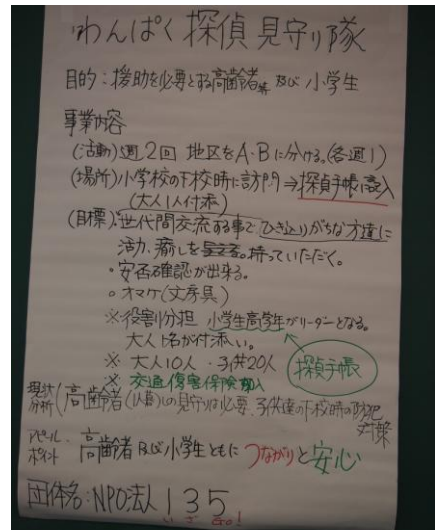 わんぱく探偵見守り隊
目的：援助を必要とする高齢者等 及び 小学生
事業内容
(活動)週2回 地区をA・Bに分ける。(各週1)
(場所)小学校の下校時に訪問⇒探偵手帳記入
(大人1人付添)
(目標)・世代間交流する事でひきこもりがちな方達に
活力、癒しを与える。持っていただく。
・安否確認が出来る。
○オマケ(文房具)
※役割分担 小学生高学年がリーダーとなる。
大人1名が付添い。
※大人10人・子供20人 探偵手帳
※交通傷害保険加入
現状分析(高齢者(1人暮)の見守りは必要、子供達の下校時の防犯対策
アピールポイント 高齢者及び小学生ともにつながりと安心
団体名：NPO法人 135
いざGO!